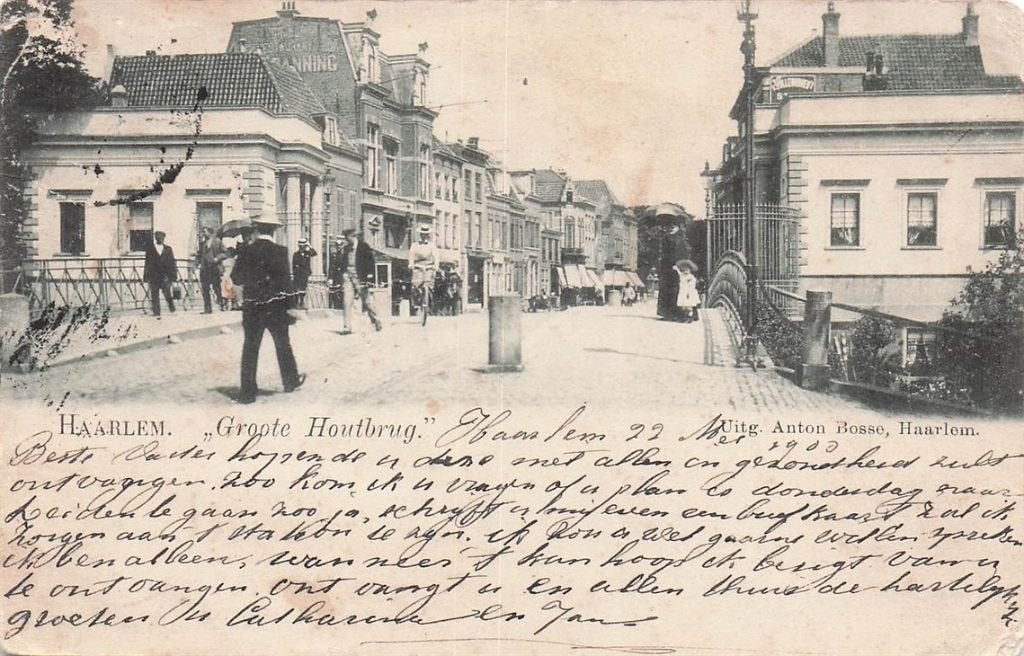 RESTAURANT
BRANNING
HAARLEM. „Groote Houtbrug.”
Uitg. Anton Bosse, Haarlem.
Haarlem 22 Mei 1900
Beste Vader hopende u deze met allen in gezondheid zult
ontvangen. zoo kom ik u vragen of u plan is donderdag naar
Leiden te gaan zoo ja, schrijft u mij even een briefkaart zal ik
zorgen aan 't station te zijn. ik zou u wel gaarne willen spreken
ik ben alleen, wanneer 't kan hoop ik berigt van u
te ontvangen. ontvangt u en allen thuis de hartelijke
groeten v Catharina en Jan